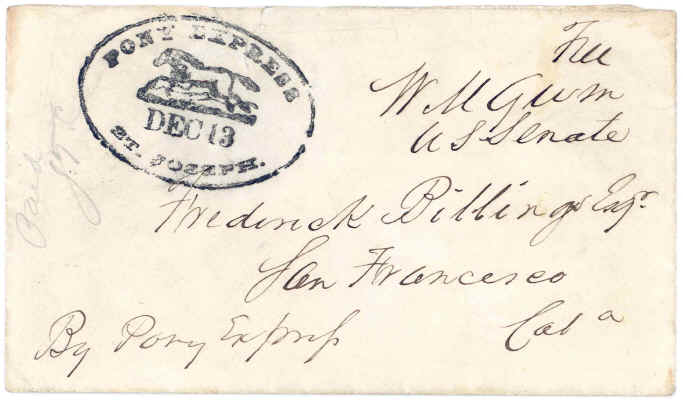 PONY EXPRESS
DEC 13
ST. JOSEPH.
Free
W M Gwin
U S Senate
Paid
Frederick Billings Esqr.
San Francesco
Cala
By Pony Express